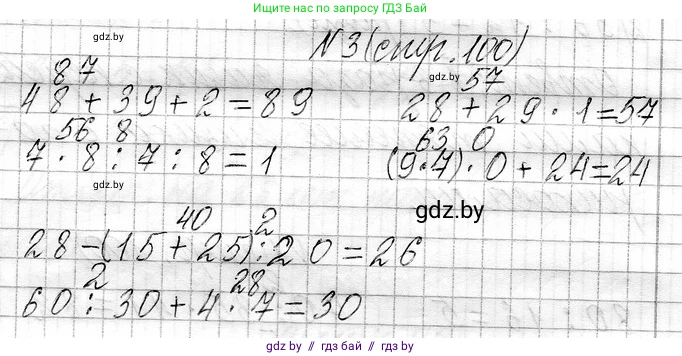 Ищите нас по запросу ГДЗ Бай
gdz.by
N 3 (стр. 100)
gdz.by
87
48 + 39 + 2 = 89
57
28 + 29 · 1 = 57
56 8
7 · 8 : 7 : 8 = 1
63 0
(9·7) · 0 + 24 = 24
gdz.by
gdz.by
40 2
28 - (15 + 25) : 20 = 26
2 28
60 : 30 + 4 · 7 = 30
gdz.by // гдз бай // gdz.by